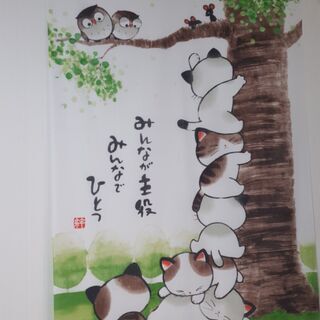 みんなが主役
みんなで
ひとつ